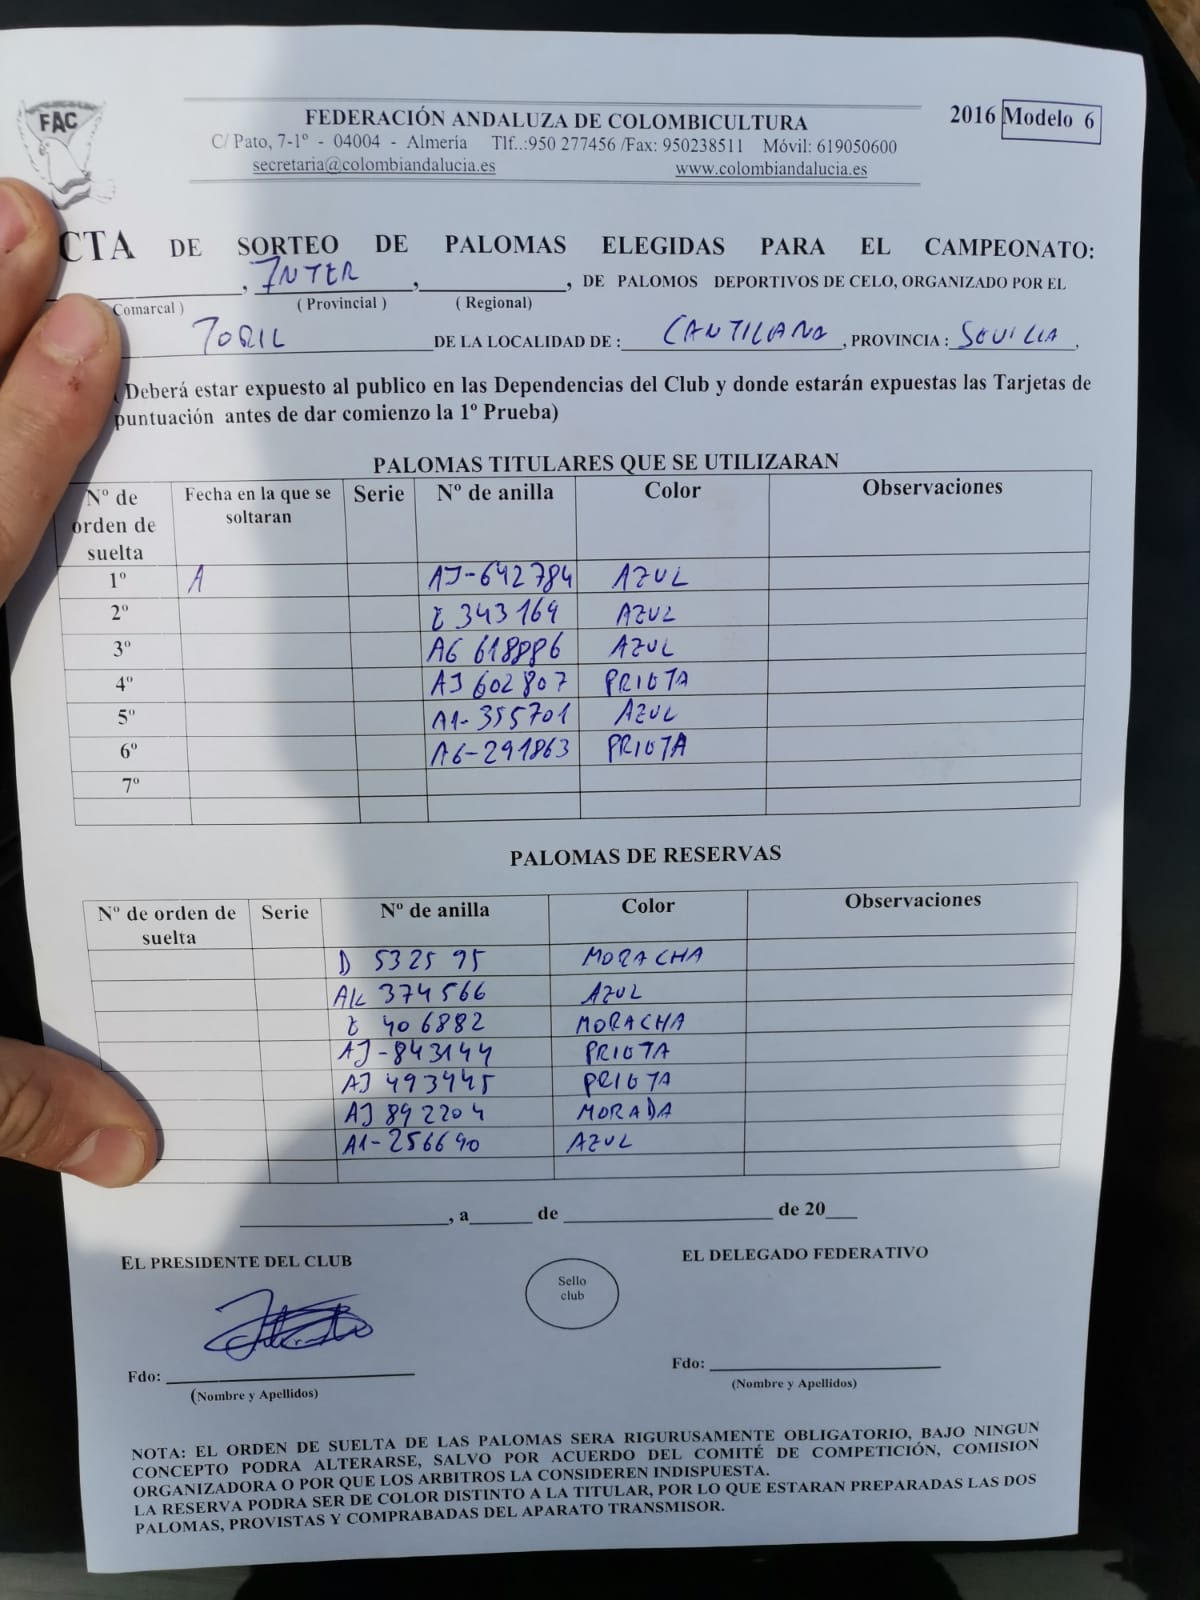 FAC
FEDERACIÓN ANDALUZA DE COLOMBICULTURA
2016 Modelo 6
C/ Pato, 7-1º - 04004 - Almería Tlf..:950 277456 /Fax: 950238511 Móvil: 619050600
secretaria@colombiandalucia.es www.colombiandalucia.es
CTA DE SORTEO DE PALOMAS ELEGIDAS PARA EL CAMPEONATO:
, INTER , , DE PALOMOS DEPORTIVOS DE CELO, ORGANIZADO POR EL
Comarcal ) ( Provincial ) ( Regional)
TORIL DE LA LOCALIDAD DE : CANTILANA , PROVINCIA : SEVILLA ,
( Deberá estar expuesto al publico en las Dependencias del Club y donde estarán expuestas las Tarjetas de
puntuación antes de dar comienzo la 1º Prueba)
PALOMAS TITULARES QUE SE UTILIZARAN
Nº de orden de suelta Fecha en la que se soltaran Serie Nº de anilla Color Observaciones
1º A AJ-642784 AZUL
2º 343169 AZUL
3º A6 618886 AZUL
4º AJ 602807 PRIETA
5º A1-355701 AZUL
6º A6-291863 PRIETA
7º
PALOMAS DE RESERVAS
Nº de orden de suelta Serie Nº de anilla Color Observaciones
D 532595 MORACHA
AK 374566 AZUL
406882 MORACHA
AJ-843144 PRIETA
AJ 493445 PRIETA
AJ 892204 MORADA
A1-256690 AZUL
, a de de 20
EL PRESIDENTE DEL CLUB EL DELEGADO FEDERATIVO
Sello
club
Fdo: Fdo:
(Nombre y Apellidos) (Nombre y Apellidos)
NOTA: EL ORDEN DE SUELTA DE LAS PALOMAS SERA RIGURUSAMENTE OBLIGATORIO, BAJO NINGUN
CONCEPTO PODRA ALTERARSE, SALVO POR ACUERDO DEL COMITÉ DE COMPETICIÓN, COMISION
ORGANIZADORA O POR QUE LOS ARBITROS LA CONSIDEREN INDISPUESTA.
LA RESERVA PODRA SER DE COLOR DISTINTO A LA TITULAR, POR LO QUE ESTARAN PREPARADAS LAS DOS
PALOMAS, PROVISTAS Y COMPRABADAS DEL APARATO TRANSMISOR.